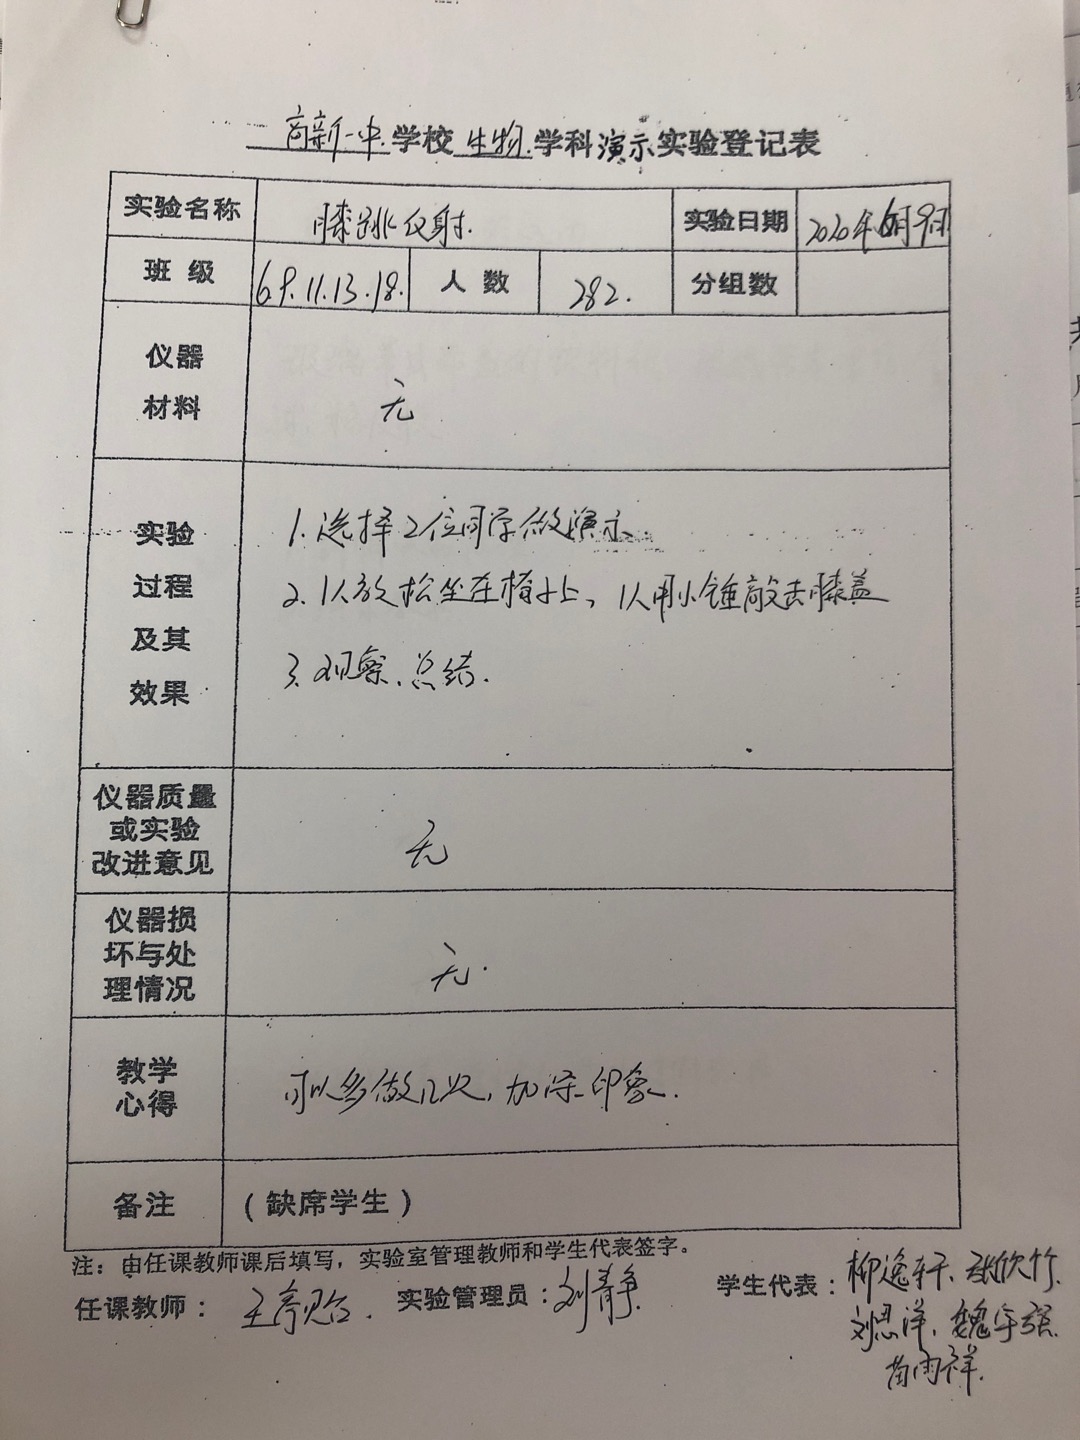 高新一中学校生物学科演示实验登记表
实验名称 膝跳反射. 实验日期 2020年6月9日
班级 6.9.11.13.18. 人数 282. 分组数
仪器
材料
无
实验
过程
及其
效果
1.选择2位同学做演示
2.1人放松坐在椅子上，1人用小锤敲击膝盖
3.观察、总结.
仪器质量
或实验
改进意见
无
仪器损
坏与处
理情况
无.
教学
心得
可以多做几次，加深印象.
备注 （缺席学生）
注：由任课教师课后填写，实验室管理教师和学生代表签字。
任课教师： 实验管理员：刘青争 学生代表：柳逸轩、张欣竹
刘思洋、魏
苗雨祥.